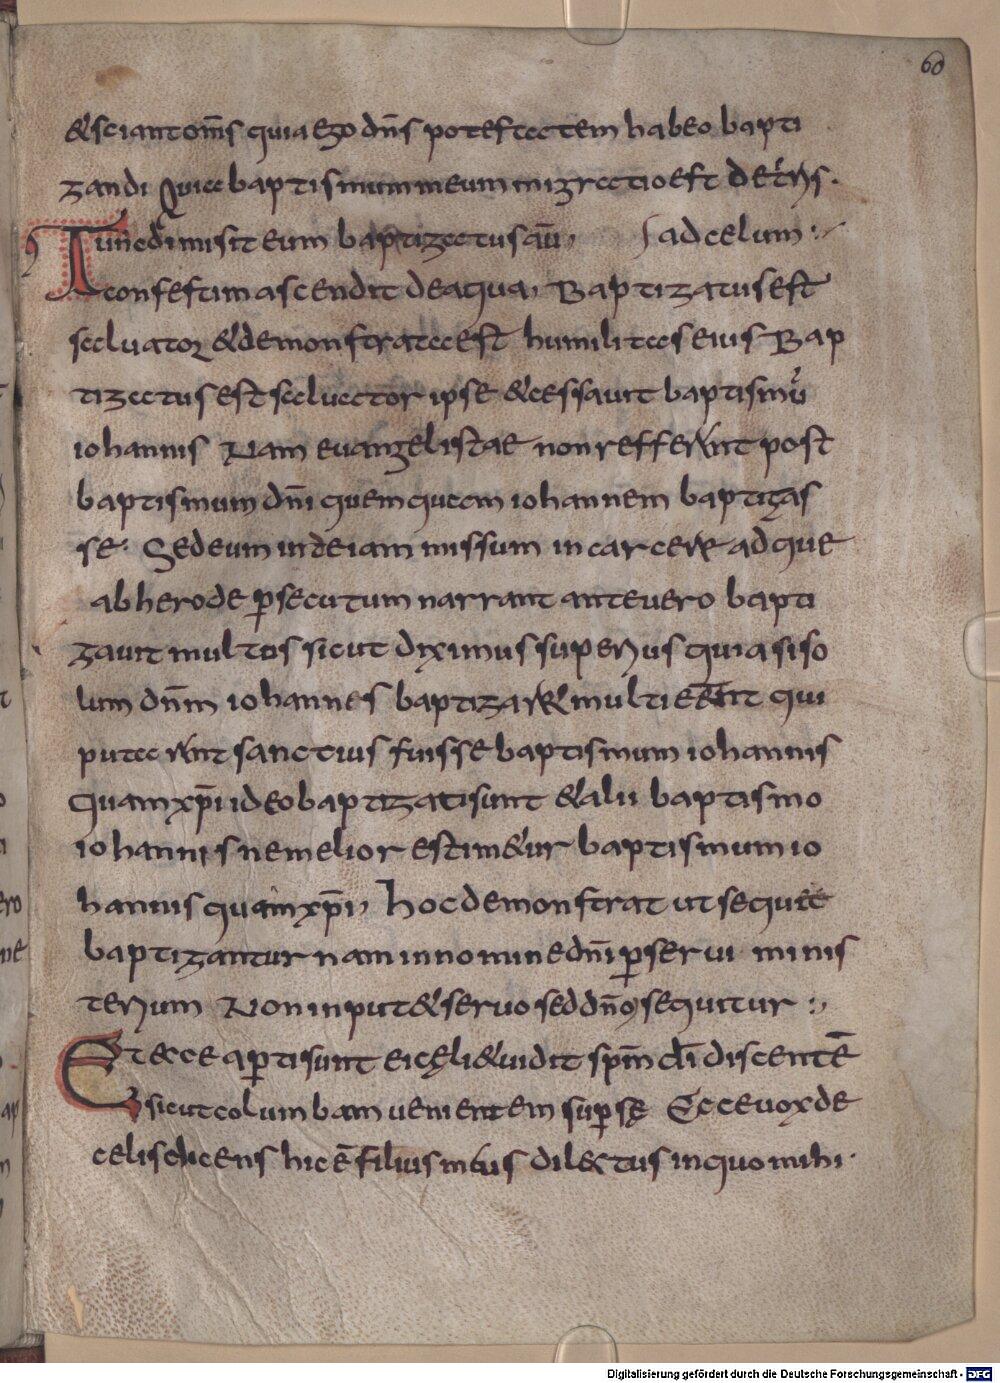 60
&sciant om̄s quia ego dn̄s potestatem habeo bapti
zandi Quia baptismum meum migratio est de t̓ris.
Tunc dimisit eum baptizatus aū, ad celum :
confestim ascendit de aqua, Baptizatus est
saluator &demonstrata est humilitas eius Bap
tizatus est saluator ipse &cessauit baptismū
iohannis Nam euangelistae non refferunt post
baptismum dn̄i quemquam iohannem baptizas
se. Sed eum in deiam missum in carcere adque
ab herode ꝑsecutum narrant ante uero bapti
zauit multos sicut diximus superius quia si so
lum dn̄m iohannes baptizar& multi erant qui
putarunt sanctius fuisse baptismum iohannis
Quam xp̄i ideo baptizati sunt &alii baptismo
iohannis ne melior estim&ur baptismum io
hannis quam xp̄i, hoc demonstrat ut sequae
baptizantur nam in nomine dn̄i ꝑ serui minis
terium Non input& seruo sed dn̄o sequitur :,
Et ecce aꝑti sunt ei cęli &uidit spm̄ dī discentē
sicut columbam uenientem suꝑ sę Ecce uox de
celis dicens hic ē filius meus dilectus in quo mihi.
Digitalisierung gefördert durch die Deutsche Forschungsgemeinschaft - DFG